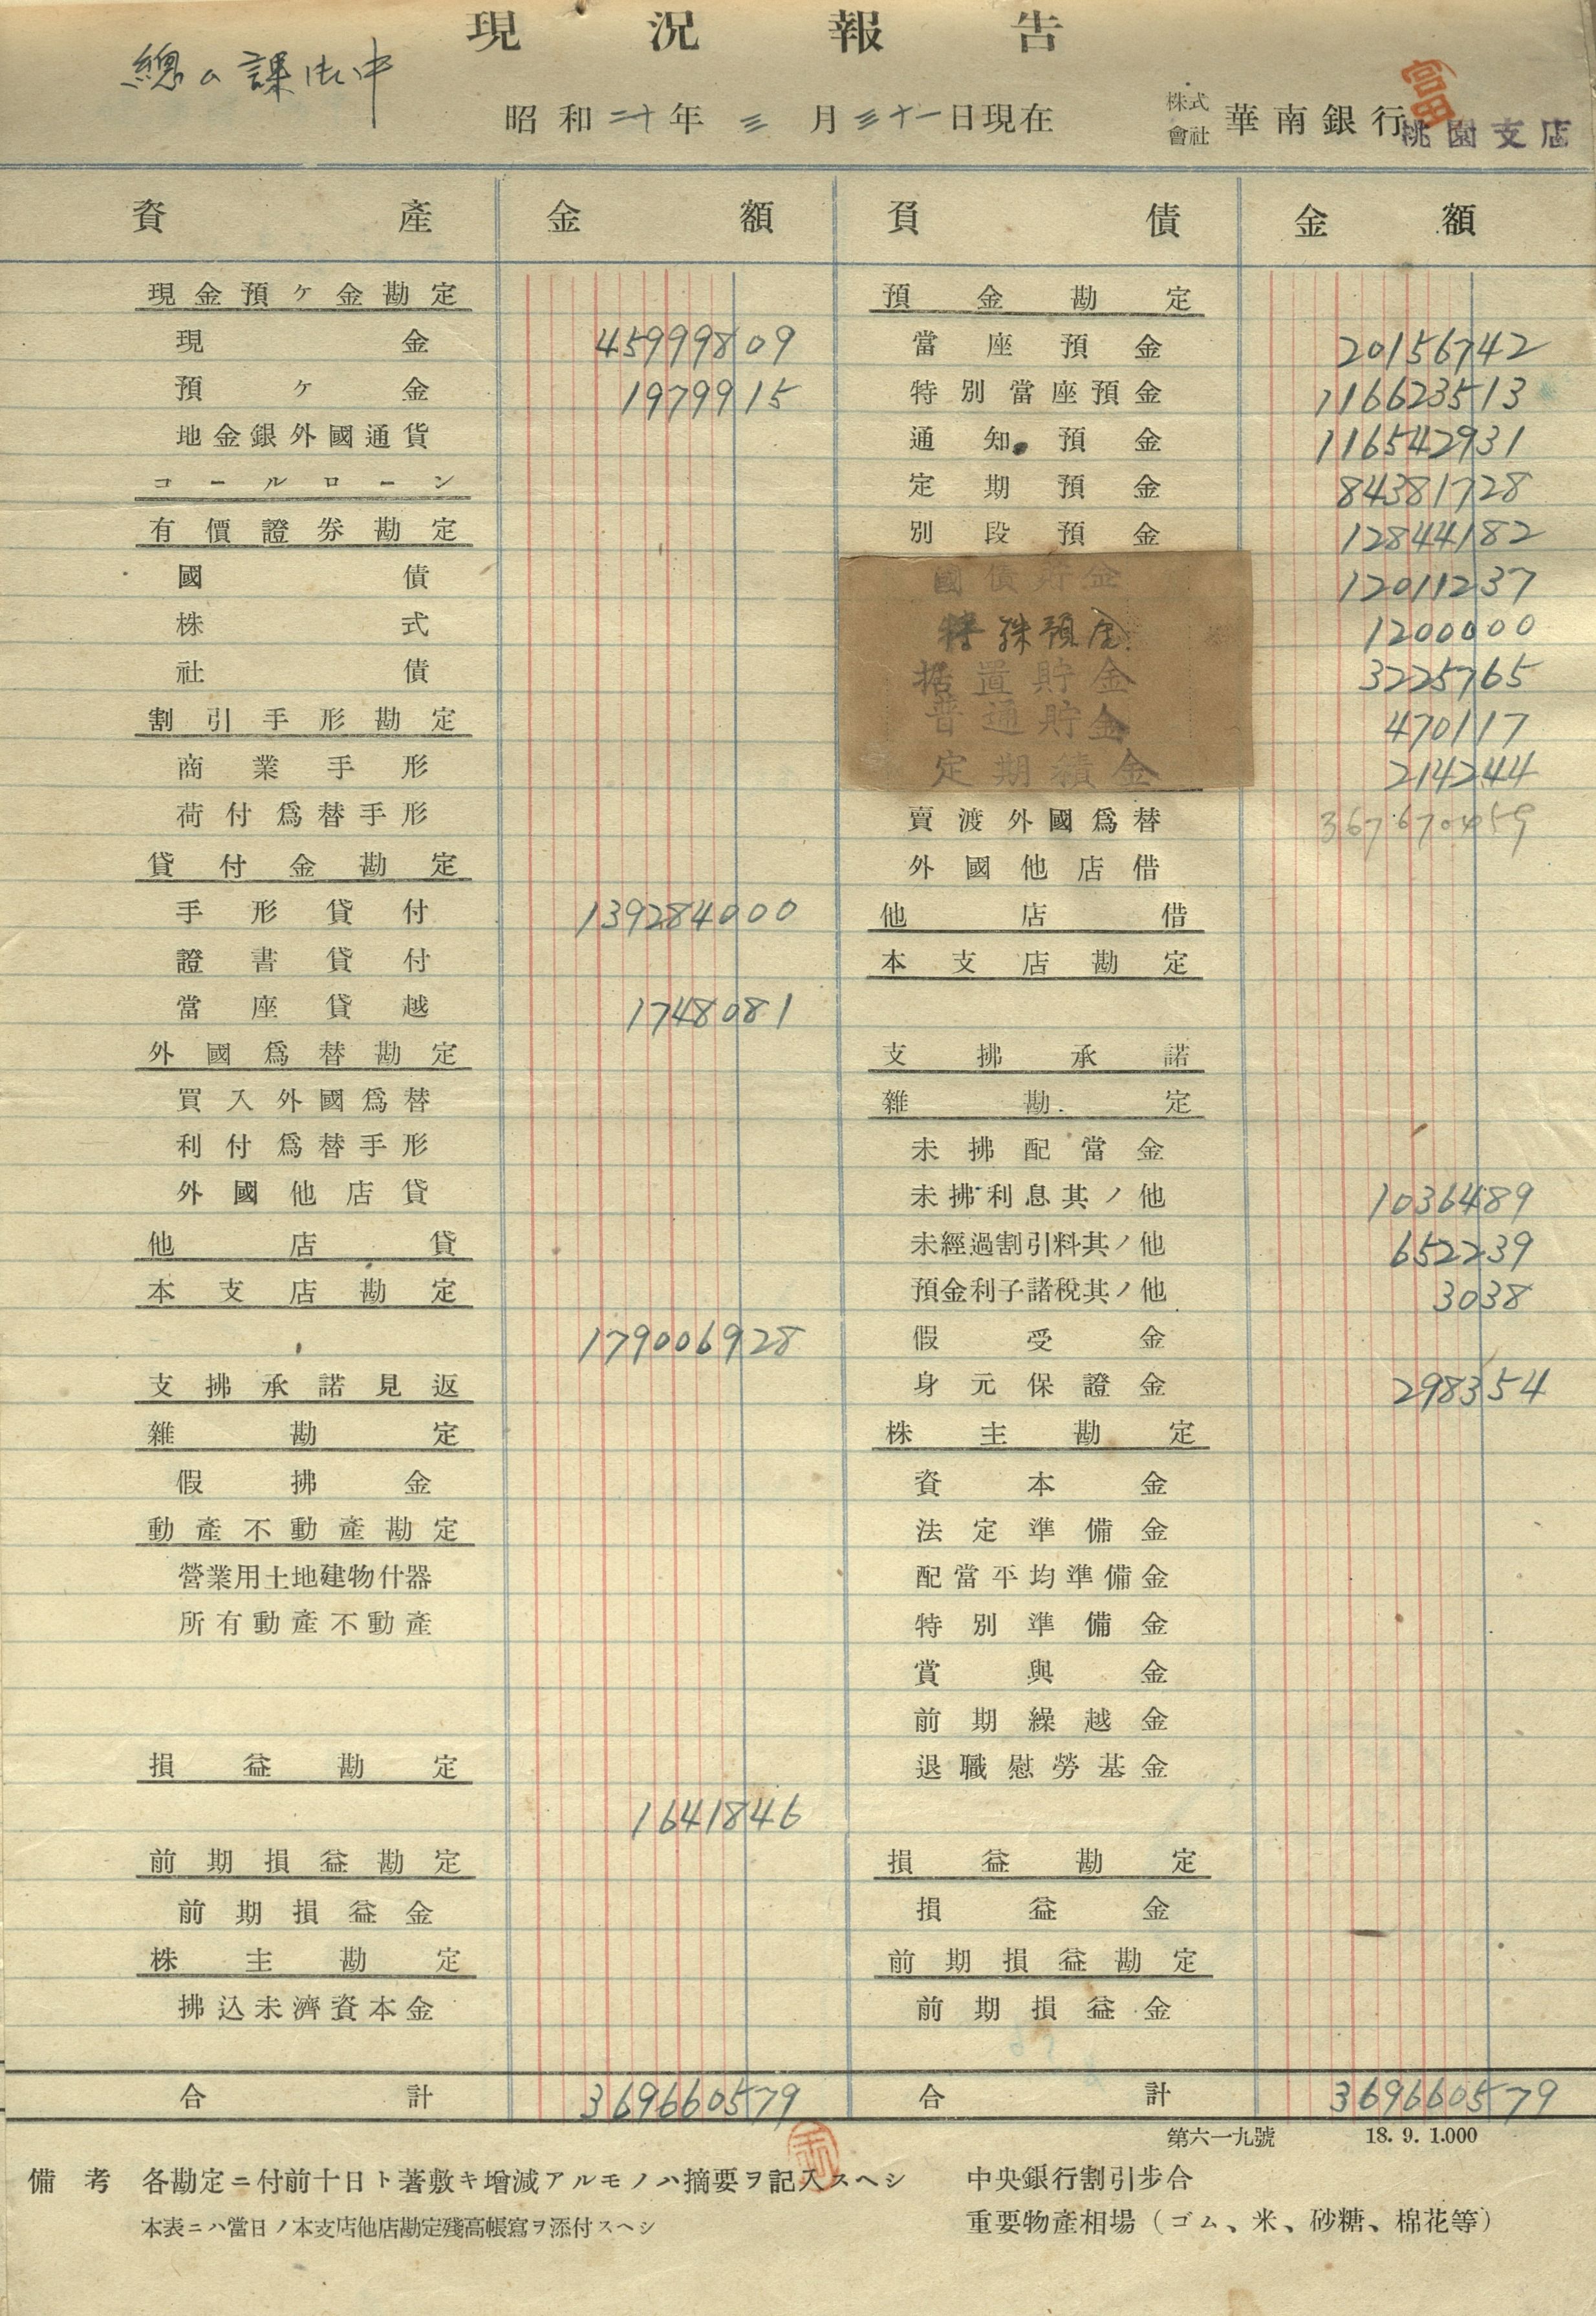 現況報告
總ム課御中
昭和二十年三月三十一日現在
株式會社 華南銀行 桃園支店
富田
資產 金額 負債 金額
現金預ケ金勘定
現金 459998 09
預ケ金 19799 15
地金銀外國通貨
コールローン
有價證券勘定
國債
株式
社債
割引手形勘定
商業手形
荷付爲替手形
貸付金勘定
手形貸付 1392840 00
證書貸付
當座貸越 17480 81
外國爲替勘定
買入外國爲替
利付爲替手形
外國他店貸
他店貸
本支店勘定
1790069 28
支拂承諾見返
雜勘定
假拂金
動產不動產勘定
營業用土地建物什器
所有動產不動產
損益勘定
16418 46
前期損益勘定
前期損益金
株主勘定
拂込未濟資本金
合計 3696605 79
預金勘定
當座預金 201567 42
特別當座預金 1166235 13
通知預金 1165429 31
定期預金 843817 28
別段預金 128441 82
國債貯金 120112 37
特殊預金 12000 00
据置貯金 32257 65
普通貯金 4701 17
定期積金 2142 44
賣渡外國爲替 3676704 59
外國他店借
他店借
本支店勘定
支拂承諾
雜勘定
未拂配當金
未拂利息其ノ他 10364 89
未經過割引料其ノ他 6522 39
預金利子諸稅其ノ他 30 38
假受金
身元保證金 2983 54
株主勘定
資本金
法定準備金
配當平均準備金
特別準備金
賞與金
前期繰越金
退職慰勞基金
損益勘定
損益金
前期損益勘定
前期損益金
合計 3696605 79
第六一九號 18. 9. 1.000
備考 各勘定ニ付前十日ト著敷キ增減アルモノハ摘要ヲ記入スヘシ
本表ニハ當日ノ本支店他店勘定殘高帳寫ヲ添付スヘシ
中央銀行割引步合
重要物產相場（ゴム、米、砂糖、棉花等）